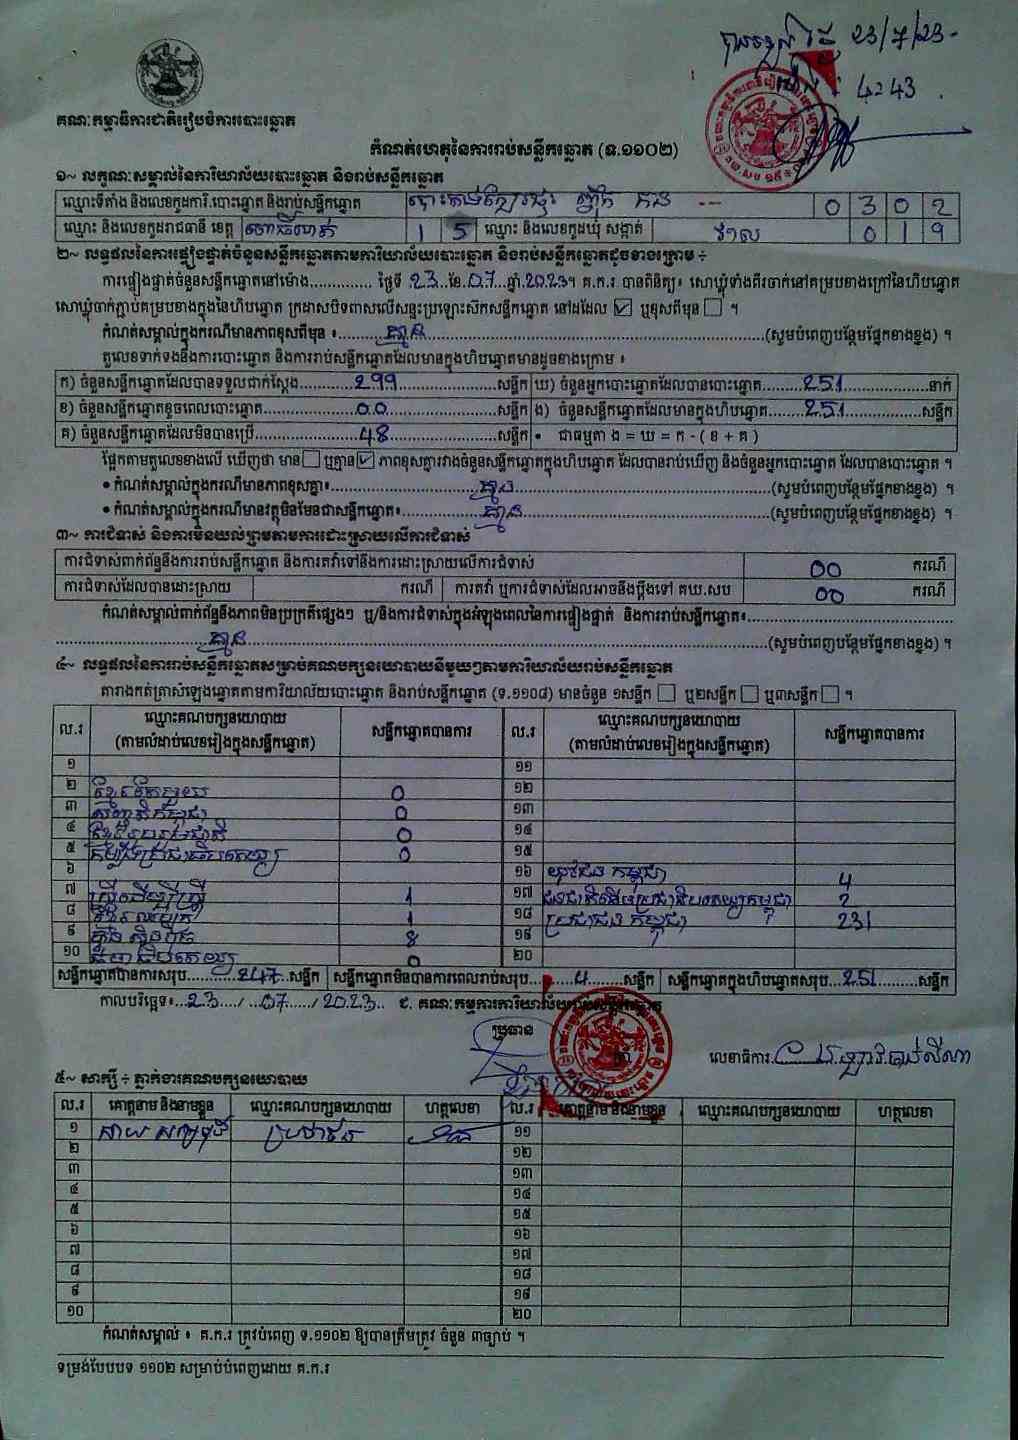 23/7/23-
4:43
គណៈកម្មាធិការជាតិរៀបចំការបោះឆ្នោត
កំណត់ហេតុនៃការរាប់សន្លឹកឆ្នោត (ទ.១១០២)
១~ លក្ខណៈសម្គាល់នៃការិយាល័យបោះឆ្នោត និងរាប់សន្លឹកឆ្នោត
ឈ្មោះទីតាំង និងលេខកូដការិ.បោះឆ្នោត និងរាប់សន្លឹកឆ្នោត 0 3 0 2
ឈ្មោះ និងលេខកូដរាជធានី ខេត្ត ពោធិ៍សាត់ 1 5 ឈ្មោះ និងលេខកូដឃុំ សង្កាត់ 0 1 9
២~ លទ្ធផលនៃការផ្ទៀងផ្ទាត់ចំនួនសន្លឹកឆ្នោតតាមការិយាល័យបោះឆ្នោត និងរាប់សន្លឹកឆ្នោតដូចខាងក្រោម ÷
ការផ្ទៀងផ្ទាត់ចំនួនសន្លឹកឆ្នោតនៅម៉ោង.............. ថ្ងៃទី 23 ខែ 07 ឆ្នាំ 2023។ គ.ក.រ បានពិនិត្យ៖ សោឃ្លុំទាំងពីរចាក់នៅគម្របខាងក្រៅនៃហិបឆ្នោត
សោឃ្លុំចាក់ភ្ជាប់គម្របខាងក្នុងនៃហិបឆ្នោត ក្រដាសបិទពាសលើសន្ទះប្រឡោះសៀតសន្លឹកឆ្នោត នៅដដែល ☑ ឬខុសពីមុន ☐ ។
កំណត់សម្គាល់ក្នុងករណីមានភាពខុសពីមុន ៖ គ្មាន (សូមបំពេញបន្ថែមផ្នែកខាងខ្នង) ។
តួលេខទាក់ទងនឹងការបោះឆ្នោត និងការរាប់សន្លឹកឆ្នោតដែលមានក្នុងហិបឆ្នោតមានដូចខាងក្រោម ៖
ក) ចំនួនសន្លឹកឆ្នោតដែលបានទទួលជាក់ស្តែង 299 សន្លឹក ឃ) ចំនួនអ្នកបោះឆ្នោតដែលបានបោះឆ្នោត 251 នាក់
ខ) ចំនួនសន្លឹកឆ្នោតខូចពេលបោះឆ្នោត 00 សន្លឹក ង) ចំនួនសន្លឹកឆ្នោតដែលមានក្នុងហិបឆ្នោត 251 សន្លឹក
គ) ចំនួនសន្លឹកឆ្នោតដែលមិនបានប្រើ 48 សន្លឹក • ជាធម្មតា ង = ឃ = ក - ( ខ + គ )
ផ្អែកតាមតួលេខខាងលើ ឃើញថា មាន ☐ ឬគ្មាន ☑ ភាពខុសគ្នារវាងចំនួនសន្លឹកឆ្នោតក្នុងហិបឆ្នោត ដែលបានរាប់ឃើញ និងចំនួនអ្នកបោះឆ្នោត ដែលបានបោះឆ្នោត ។
• កំណត់សម្គាល់ក្នុងករណីមានភាពខុសគ្នា៖ គ្មាន (សូមបំពេញបន្ថែមផ្នែកខាងខ្នង) ។
• កំណត់សម្គាល់ក្នុងករណីមានវត្ថុមិនមែនជាសន្លឹកឆ្នោត៖ គ្មាន (សូមបំពេញបន្ថែមផ្នែកខាងខ្នង) ។
៣~ ការជំទាស់ និងការមិនយល់ព្រមតាមការដោះស្រាយលើការជំទាស់
ការជំទាស់ពាក់ព័ន្ធនឹងការរាប់សន្លឹកឆ្នោត និងការតវ៉ាទៅនឹងការដោះស្រាយលើការជំទាស់ 00 ករណី
ការជំទាស់ដែលបានដោះស្រាយ ករណី ការតវ៉ា ឬការជំទាស់ដែលអាចនឹងប្តឹងទៅ គឃ.សប 00 ករណី
កំណត់សម្គាល់ពាក់ព័ន្ធនឹងភាពមិនប្រក្រតីផ្សេងៗ ឬ/និងការជំទាស់ក្នុងអំឡុងពេលនៃការផ្ទៀងផ្ទាត់ និងការរាប់សន្លឹកឆ្នោត៖
គ្មាន (សូមបំពេញបន្ថែមផ្នែកខាងខ្នង) ។
៤~ លទ្ធផលនៃការរាប់សន្លឹកឆ្នោតសម្រាប់គណបក្សនយោបាយនីមួយៗតាមការិយាល័យរាប់សន្លឹកឆ្នោត
តារាងកត់ត្រាសំឡេងឆ្នោតតាមការិយាល័យបោះឆ្នោត និងរាប់សន្លឹកឆ្នោត (ទ.១១០៨) មានចំនួន ១សន្លឹក ☐ ឬ២សន្លឹក ☐ ឬ៣សន្លឹក ☐ ។
ល.រ ឈ្មោះគណបក្សនយោបាយ (តាមលំដាប់លេខរៀងក្នុងសន្លឹកឆ្នោត) សន្លឹកឆ្នោតបានការ ល.រ ឈ្មោះគណបក្សនយោបាយ (តាមលំដាប់លេខរៀងក្នុងសន្លឹកឆ្នោត) សន្លឹកឆ្នោតបានការ
១ ១១
២ 0 ១២
៣ 0 ១៣
៤ 0 ១៤
៥ 0 ១៥
៦ ១៦ យុវជន កម្ពុជា 4
៧ ស្ត្រីដើម្បីស្ត្រី 1 ១៧ 2
៨ 1 ១៨ ប្រជាជន កម្ពុជា 231
៩ ហ៊្វុនស៊ិនប៉ិច 8 ១៩
១០ 0 ២០
សន្លឹកឆ្នោតបានការសរុប 247 សន្លឹក សន្លឹកឆ្នោតមិនបានការពេលរាប់សរុប 4 សន្លឹក សន្លឹកឆ្នោតក្នុងហិបឆ្នោតសរុប 251 សន្លឹក
កាលបរិច្ឆេទ៖ 23 / 07 / 2023 ជ. គណៈកម្មការការិយាល័យរាប់សន្លឹកឆ្នោត
ប្រធាន
លេខាធិការ
៥~ សាក្សី ÷ ភ្នាក់ងារគណបក្សនយោបាយ
ល.រ គោត្តនាម និងនាមខ្លួន ឈ្មោះគណបក្សនយោបាយ ហត្ថលេខា ល.រ គោត្តនាម និងនាមខ្លួន ឈ្មោះគណបក្សនយោបាយ ហត្ថលេខា
១ ប្រជាជន ១១
២ ១២
៣ ១៣
៤ ១៤
៥ ១៥
៦ ១៦
៧ ១៧
៨ ១៨
៩ ១៩
១០ ២០
កំណត់សម្គាល់ ៖ គ.ក.រ ត្រូវបំពេញ ទ.១១០២ ឱ្យបានត្រឹមត្រូវ ចំនួន ៣ច្បាប់ ។
ទម្រង់បែបបទ ១១០២ សម្រាប់បំពេញដោយ គ.ក.រ